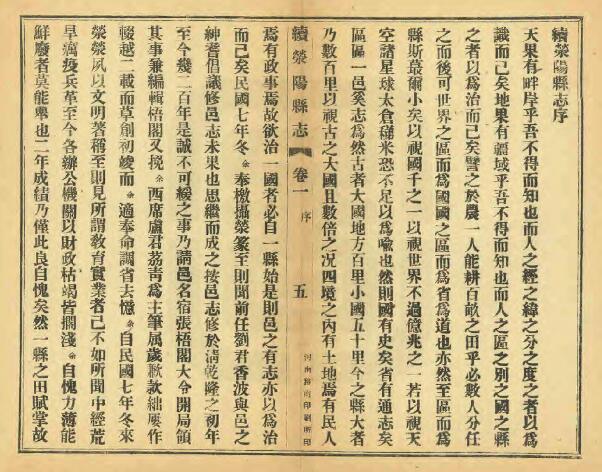 續滎陽縣志序
天果有畔岸乎吾不得而知也而人之經之緯之分之度之者以爲
識而已矣地果有疆域乎吾不得而知也而人之區之別之國之縣
之者以爲治而已矣譬之於農一人能耕百畝之田乎必數人分任
之而後可世界之區而爲國國之區而爲省爲道也亦然至區而爲
縣斯蕞爾小矣以視國千之一以視世界不過億兆之一若以視天
空諸星球太倉稊米恐不足以爲喩也然則國有史矣省有通志矣
區區一邑奚志爲然古者大國地方百里小國五十里今之縣大者
乃數百里以視古之大國且數倍之况四境之內有土地焉有民人
續滎陽縣志
卷一
序
五
河南商務印刷所印
焉有政事焉故欲治一國者必自一縣始是則邑之有志亦以爲治
而已矣民國七年冬余奉檄攝滎篆至則聞前任劉君香波與邑之
紳耆倡議修邑志未果也思繼而成之按邑志修於淸乾隆之初年
至今幾二百年是誠不可緩之事乃請邑名宿張梧閣大令開局領
其事兼編輯梧閣又挽余西席盧君茘靑爲主筆属歲歉款絀屢作
輟越二載而草創初竣而余適奉命調省去憶余自民國七年冬來
滎滎夙以文明著稱至則見所謂敎育實業者已不如所聞中經荒
旱癘疫兵革至今各辦公機關以財政枯竭皆擱淺余自愧力薄能
鮮廢者莫能舉也二年成績乃僅此良自愧矣然一縣之田賦掌故